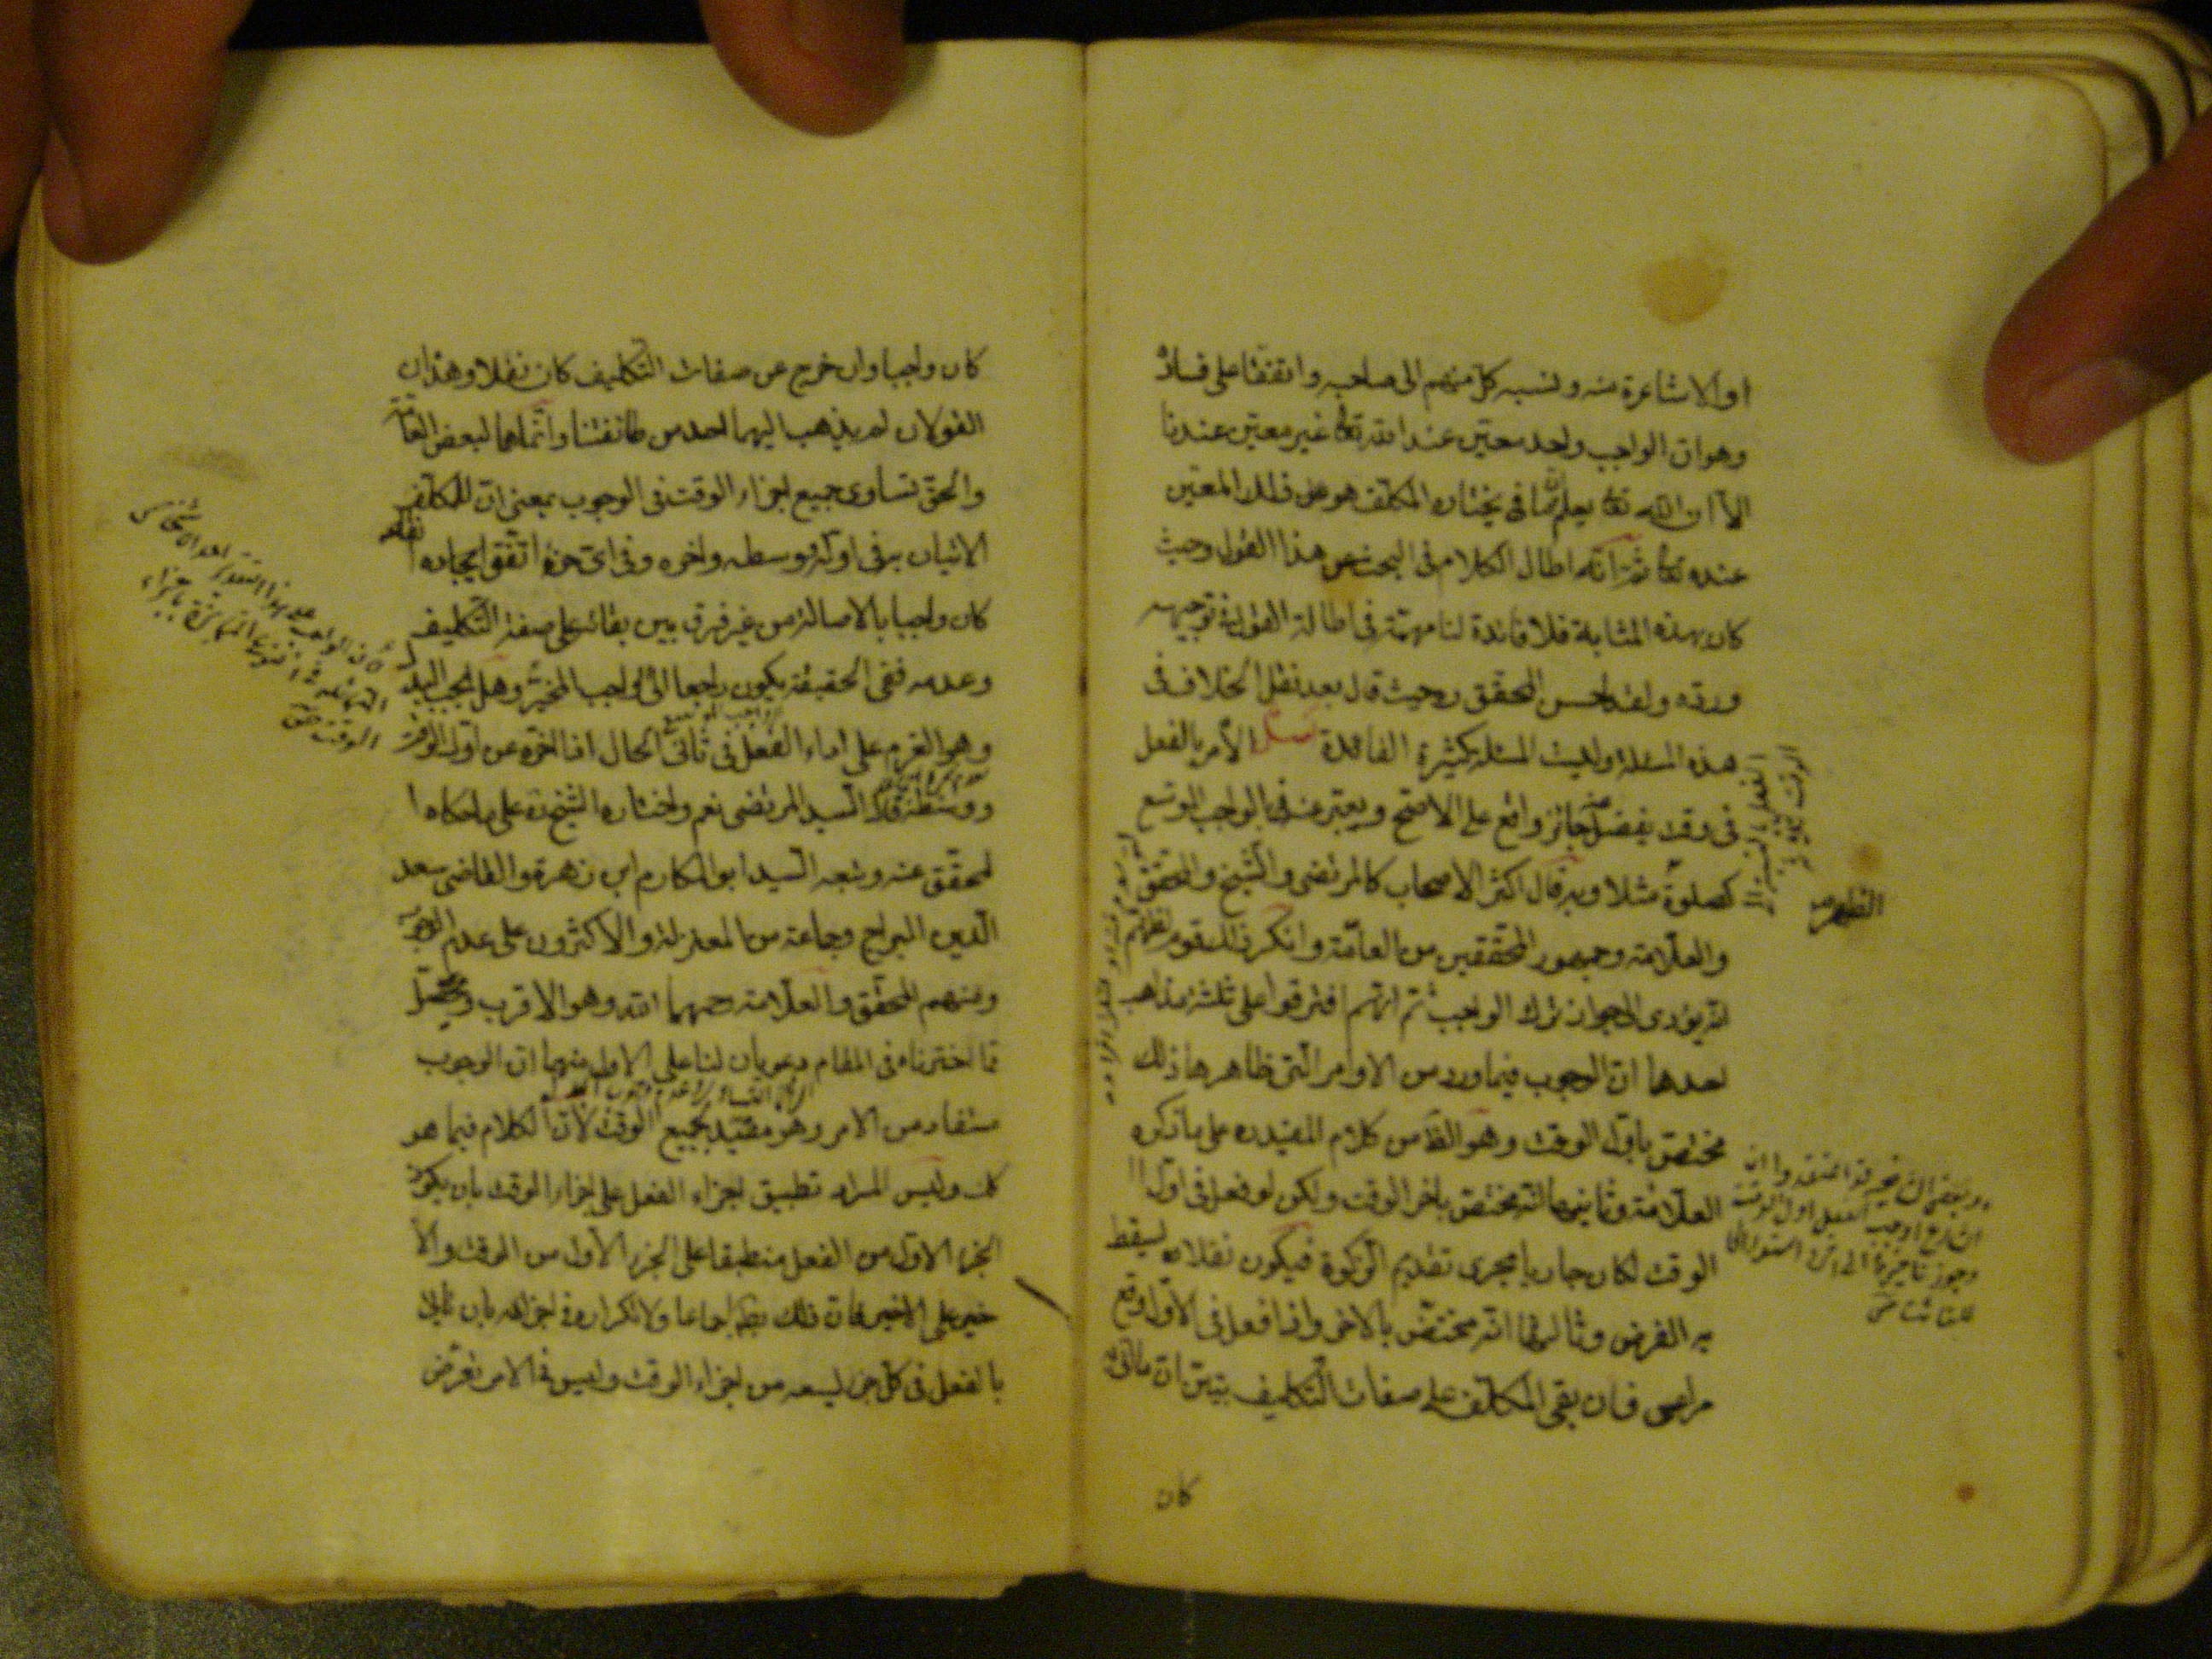 او الاشاعرة منه ونسبه كل منهم الى صاحبه واتفقا على فساده
وهو ان الواجب واحد معين عند الله تعا غير معين عندنا
الا ان الله تعا يعلم ان ما يختاره المكلف هو ذلك المعين
عنده تعا ثم انه اطال الكلام فى البحث عن هذا القول وحيث
كان بهذه المثابة فلا فائدة لنا مهمة فى اطالة القول فى توجيهه
ورده ولقد احسن المحقق ره حيث قال بعد نقل الخلاف فى
هذه المسئلة وليست المسئلة كثيرة الفائدة الأمر بالفعل
فى وقت يفضل عنه جائز واقع على الاصح ويعبر عنه بالواجب الموسع
كصلوة مثلا وبه قال اكثر الاصحاب كالمرتضى والشيخ والمحقق
الظهر
والعلامة وجمهور المحققين من العامة وانكر ذلك قوم لظنهم
انه يؤدى الى جواز ترك الواجب ثم انهم افترقوا على ثلثة مذاهب
احدها ان الوجوب فيما ورد من الاوامر التى ظاهرها ذلك
مختص باول الوقت وهو الظ من كلام المفيد ره على ما ذكره
العلامة وثانيها انه مختص باخر الوقت ولكن لو فعل فى اول
الوقت لكان جاريا مجرى تقديم الزكوة فيكون نفلا يسقط
به الفرض وثالثها انه مختص بالاخر واذا فعل فى الاول وقع
مراعى فان بقى المكلف على صفات التكليف تبين ان ما اتى به
كان
كان واجبا وان خرج عن صفات التكليف كان نفلا وهذان
القولان لم يذهب اليهما احد من طائفتنا وانما هما لبعض العامة
والحق تساوى جميع اجزاء الوقت فى الوجوب بمعنى ان للمكلف
الاتيان به فى اول وسطه واخره وفى اى جزء اتفق ايقاعه
كان واجبا بالاصالة من غير فرق بين بقائه على صفة التكليف
وعدمه ففى الحقيقة يكون راجعا الى الواجب المخير وهل يجب البدل
وهو العزم على اداء الفعل فى ثانى الحال اذا اخره عن اول الوقت
قال السيد المرتضى نعم واختاره الشيخ ره على ما حكاه ا
لمحقق عنه وتبعه السيد ابو المكارم ابن زهرة والقاضى سعد
الدين البراج وجماعة من المعتزلة والاكثرون على عدم الوجوب
ومنهم المحقق والعلامة رحمهما الله وهو الاقرب فيحصل
مما اخترناه فى المقام دعويان لنا على الاول منهما ان الوجوب
مستفاد من الامر وهو مقيد بجميع الوقت لأن الكلام فيما هو
كك وليس المراد تطبيق اجزاء الفعل على اجزاء الوقت بان يكون
الجزء الاول من الفعل منطبقا على الجزء الأول من الوقت والأ
خير على الاخير فان ذلك بط اجماعا ولا تكراره فى اجزائه بان ياتى
بالفعل فى كل جزء يسعه من اجزاء الوقت وليس فى الامر تعرض